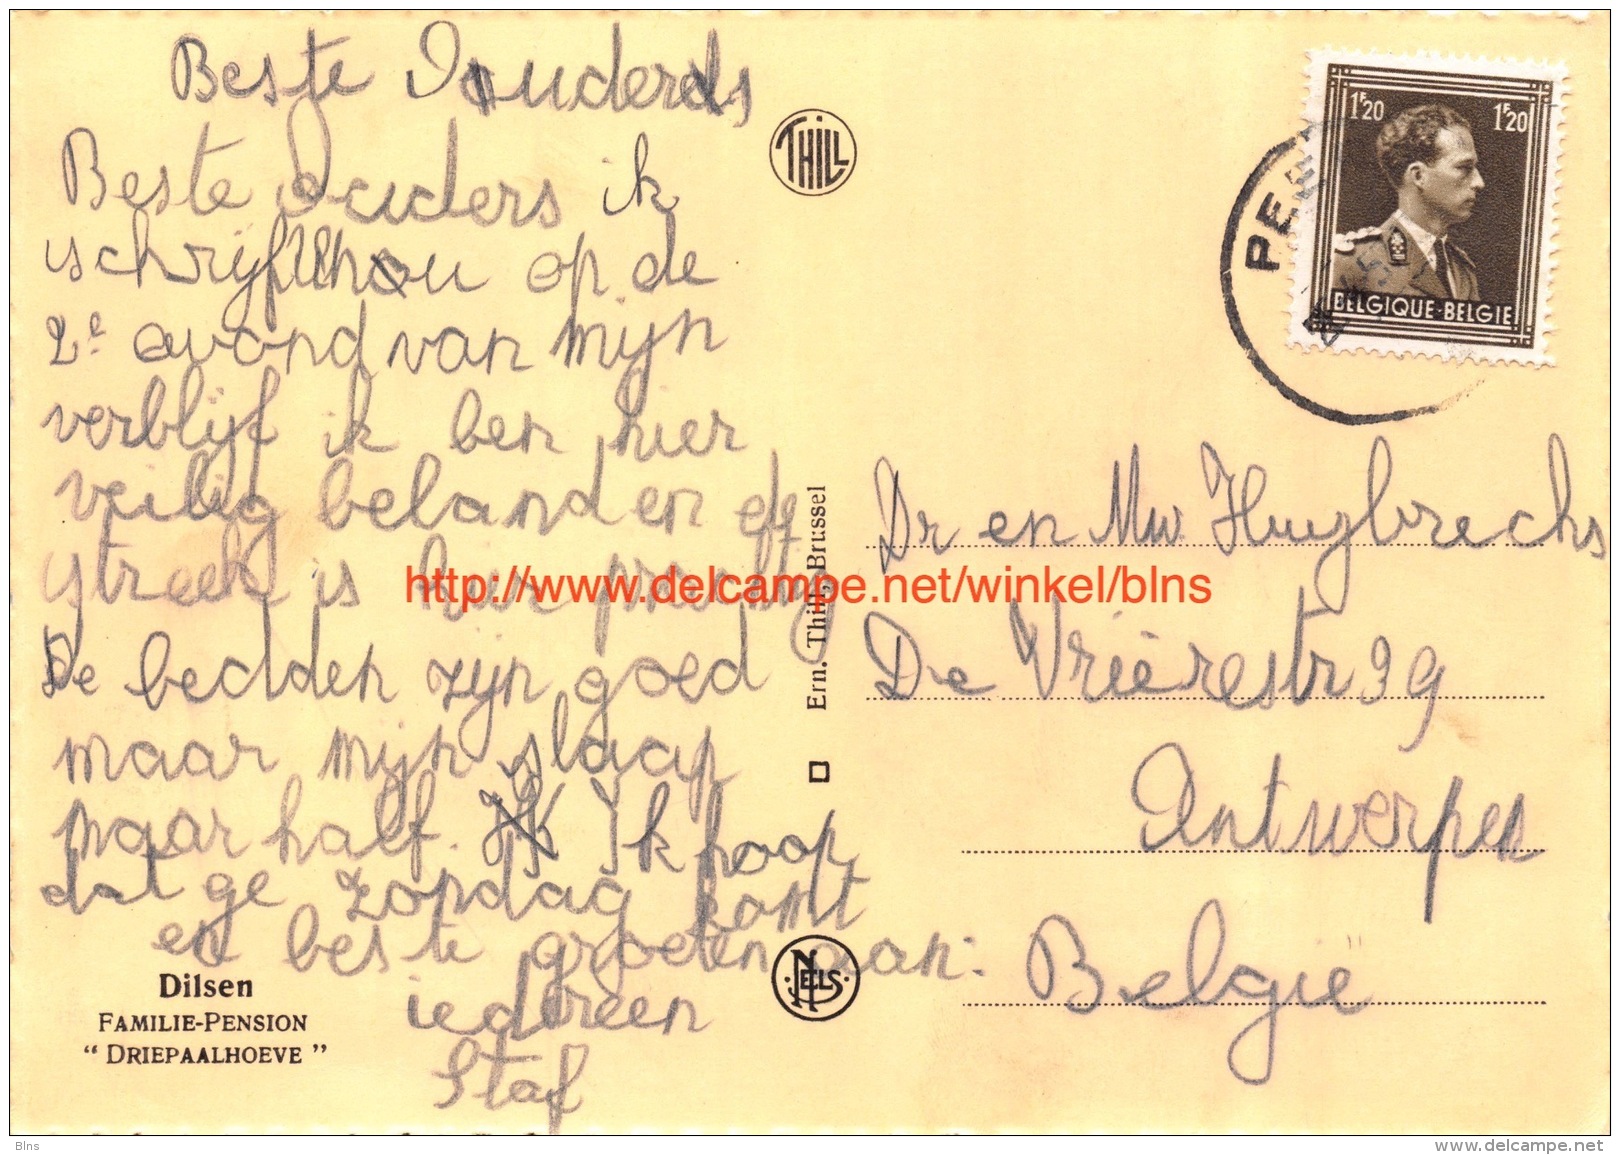 Beste Ouders
Beste Ouders ik
schrijf U nou op de
2e avond van mijn
verblijf ik ben hier
veilig beland en de
streek is hier prachtig
De bedden zijn goed
maar mijn slaap
maar half. Ik hoop
dat ge zondag komt
en beste groeten aan:
iedereen
Staf
Dilsen
FAMILIE-PENSION
“ DRIEPAALHOEVE ”
THILL
Ern. Thill, Brussel
NELS
1F20 1F20
BELGIQUE-BELGIE
PEER
Dr en Mw. Huybrechs
De Vrièrestr 39
Antwerpen
België
http://www.delcampe.net/winkel/blns
Blns
http://www.delcampe.net